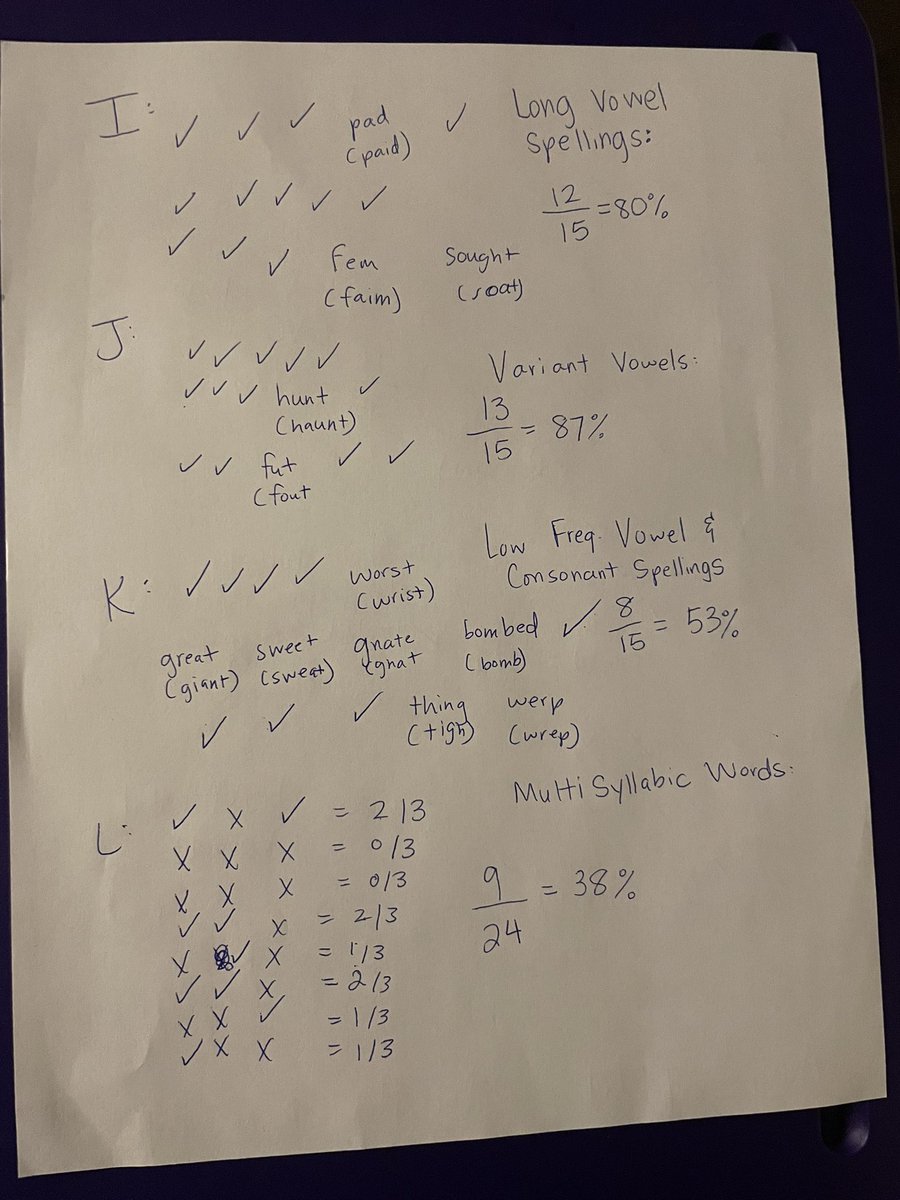 I: ✓ ✓ ✓ pad ✓ Long Vowel
(paid) Spellings:
✓ ✓ ✓ ✓ ✓ 12/15 = 80%
✓ ✓ ✓ fem sought
(faim) (soat)
J: ✓ ✓ ✓ ✓ ✓ Variant Vowels:
✓ ✓ ✓ hunt ✓
(haunt) 13/15 = 87%
✓ ✓ fut ✓ ✓
(fout
K: ✓ ✓ ✓ ✓ worst Low Freq. Vowel &
(wrist) Consonant Spellings
great sweet gnate bombed ✓ 8/15 = 53%
(giant) (sweat) (gnat (bomb)
✓ ✓ ✓ thing werp
(tigh) (wrep)
L: Multi Syllabic Words:
✓ x ✓ = 2/3
x x x = 0/3
x x x = 0/3
✓ ✓ x = 2/3
x ✓ x = 1/3
✓ ✓ x = 2/3
x x ✓ = 1/3
✓ x x = 1/3
9/24 = 38%